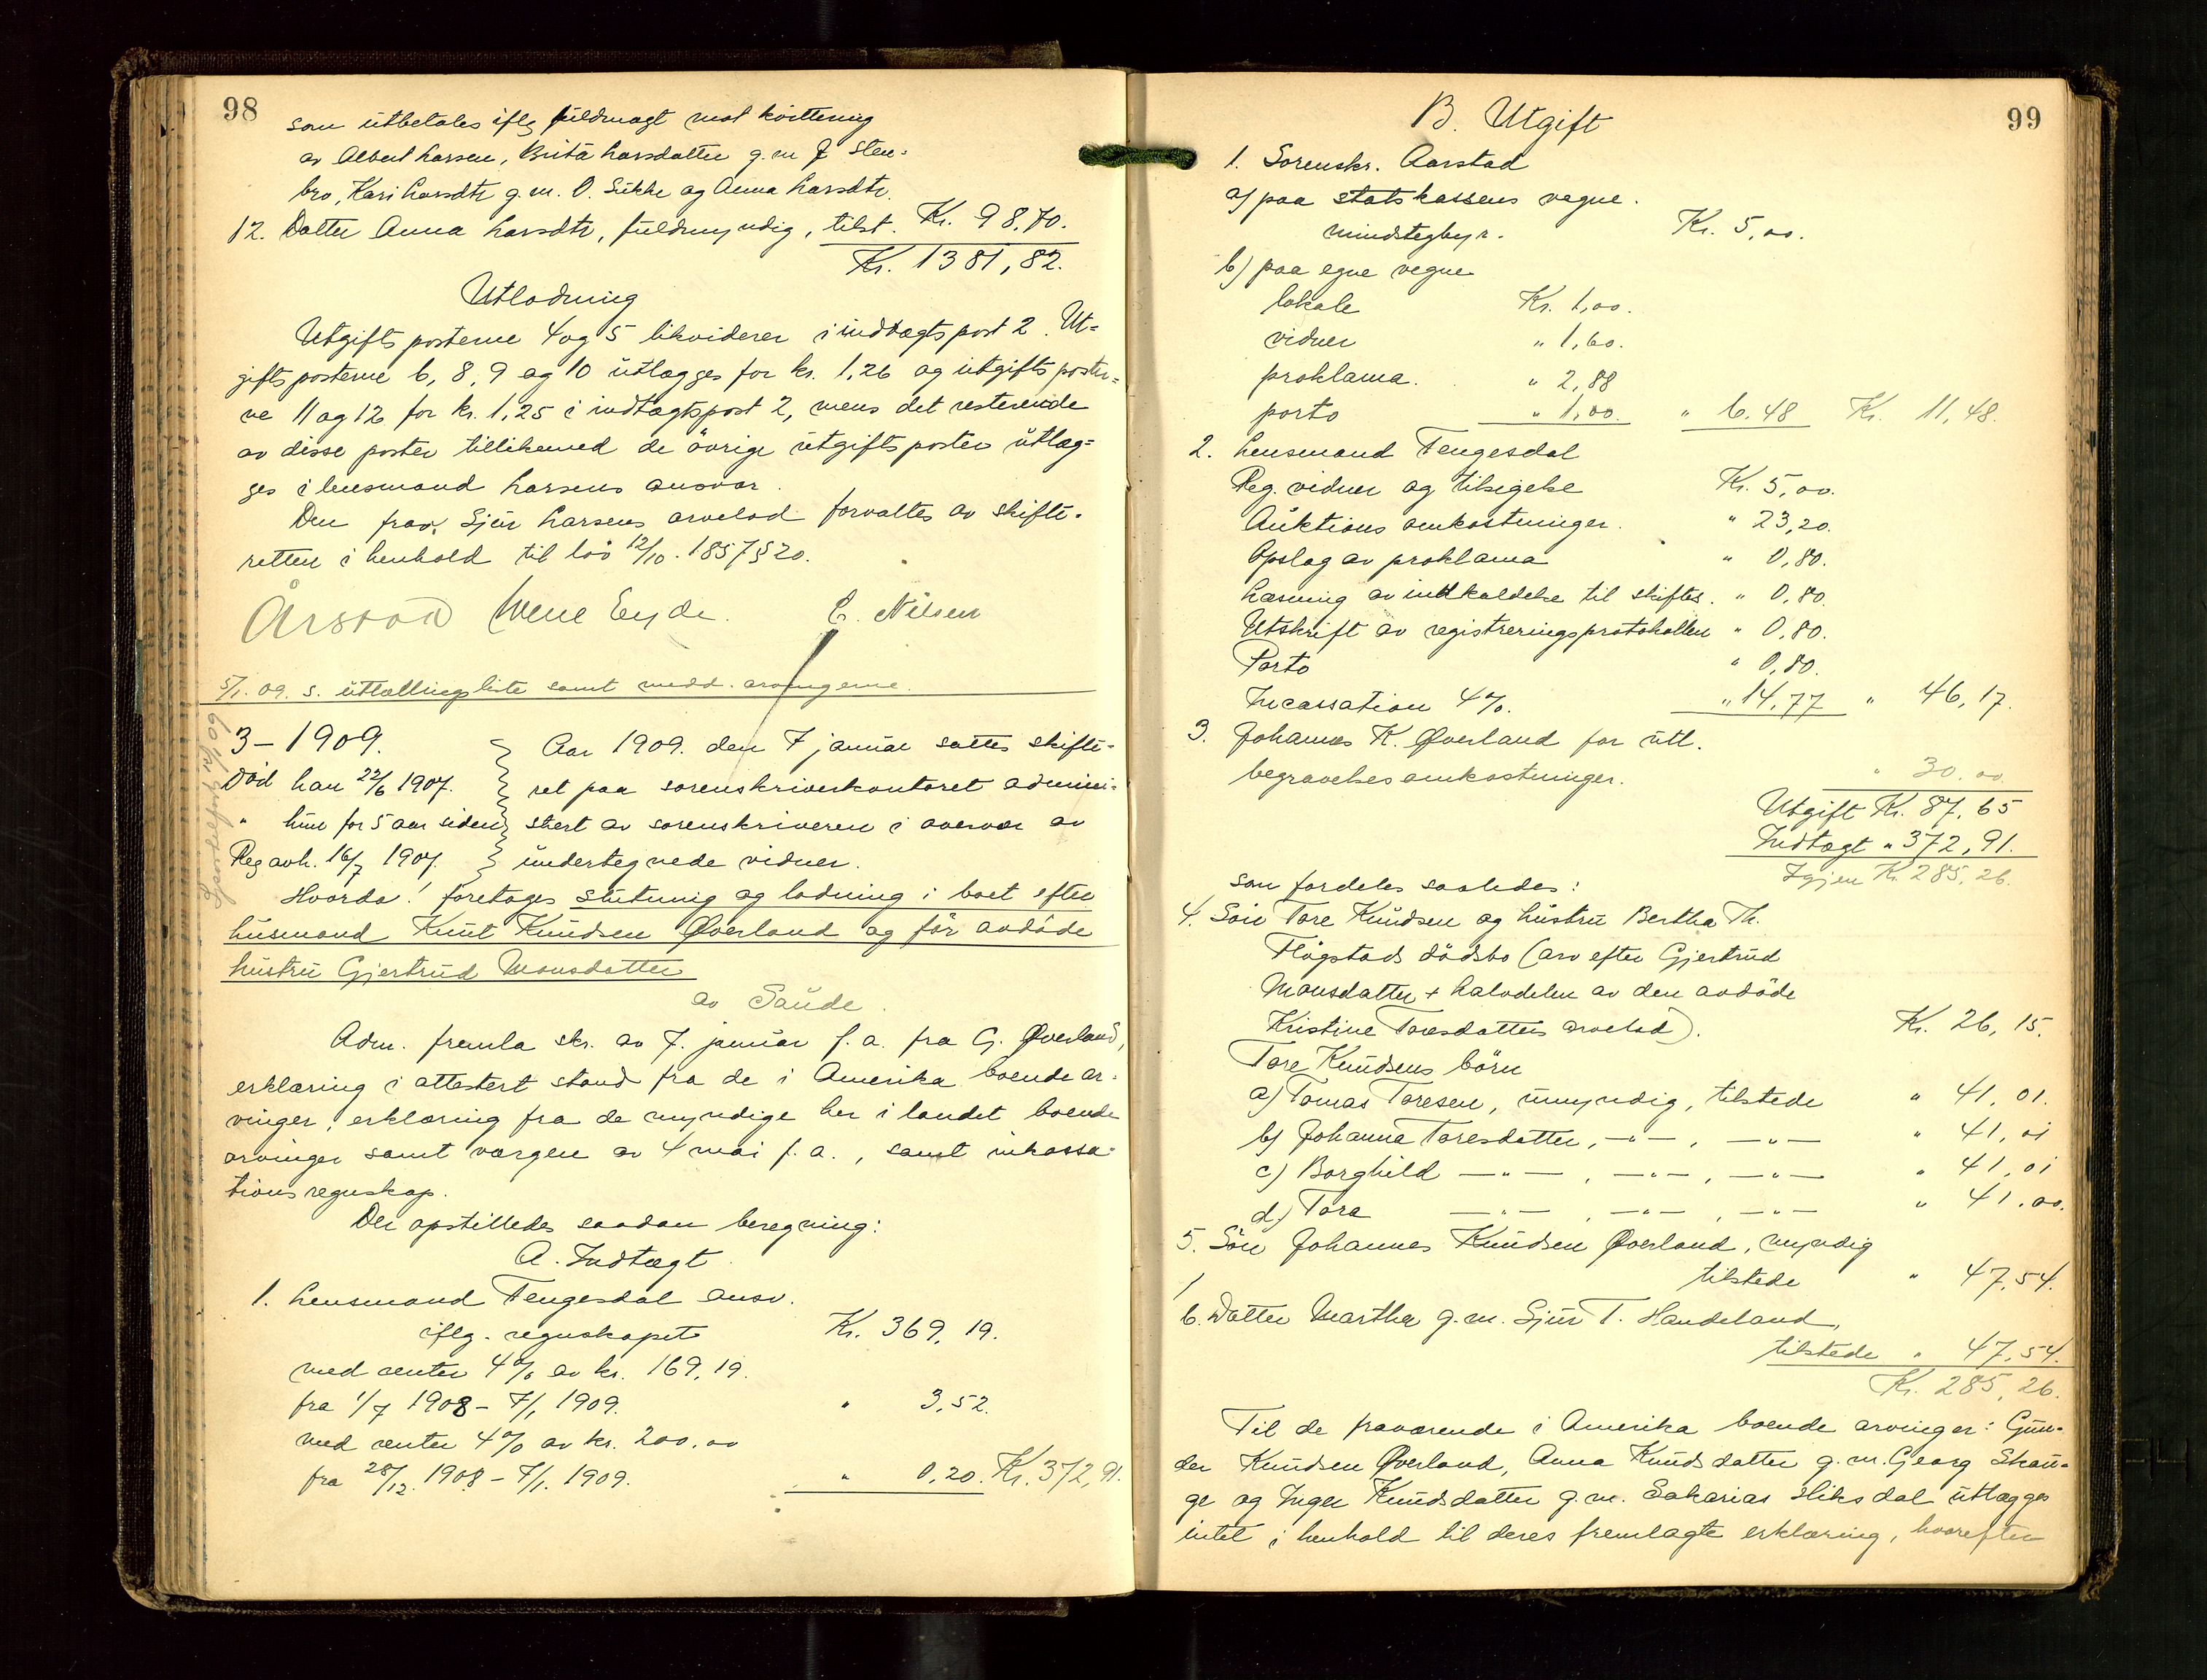 98
som utbetales iflg fuldmagt mot kvittering
av Albert Larsen, Brita Larsdatter g. m. J. Sten-
bro, Kari Larsdtr g. m. O. Sukke og Anna Larsdtr.
12. Datter Anna Larsdtr, fuldmyndig, tilst. Kr. 98,70.
Kr. 1381,82.
Utlodning
Utgiftsposterne 4 og 5 likviderer i indtægtspost 2. Ut-
giftsposterne 6, 8, 9 og 10 utlægges for kr. 1,26 og utgiftsposter-
ne 11 og 12 for kr. 1,25 i indtægtspost 2, mens det resterende
av disse poster tillikemed de övrige utgiftsposter utlæg-
ges i lensmand Larsens ansvar.
Den frav. Sjur Larsens arvelod forvaltes av skifte-
retten i henhold til lov 12/10. 1857 § 20.
Årstad Eyde. C. Nilsen
5/1. 09. s. utlællingsliste samt medd. arvingerne.
3 - 1909.
Död han 22/6 1907.
" hun for 5 aar siden
Reg avh. 16/7 1907.
Aar 1909. den 7 januar sattes skifte-
ret paa sorenskriverkontoret admini-
stert av sorenskriveren i overvær av
undertegnede vidner.
Hvorda! foretages slutning og lodning i boet efter
husmand Knut Knudsen Øverland og för avdöde
hustru Gjertrud Monsdatter
av Saude.
Adm. fremla skr. av 7. januar f. a. fra G. Øverland,
erklæring i attestert stand fra de i Amerika boende ar-
vinger, erklæring fra de myndige her i landet boende
arvinger samt værgen av 4 mai f. a., samt inkassa-
tionsregnskap.
Der opstilledes saadan beregning:
A. Indtægt.
1. Lensmand Tengesdal ansv.
iflg. regnskapet Kr. 369,19.
med renter 4% av kr. 169,19.
fra 1/7 1908 - 7/1 1909. " 3,52.
med renter 4% av kr. 200,00
fra 28/12. 1908 - 7/1. 1909. " 0,20. Kr. 372,91.
99
B. Utgift
1. Sorenskr. Aarstad
a) paa statskassens vegne.
mindstegbyr. Kr. 5,00.
b) paa egne vegne
lokale Kr. 1,00.
vidner " 1,60.
proklama. " 2,88
porto " 1,00. " 6.48 Kr. 11,48.
2. Lensmand Tengesdal
Reg. vidner og tilsigelse Kr. 5,00.
Auktions omkostninger. " 23,20.
Opslag av proklama " 0,80.
Læsning av indkaldelse til skiftes. " 0,80.
Utskrift av registreringsprotokollen " 0,80.
Porto " 0,80.
Incassation 4%. " 14,77 " 46,17.
3. Johannes K. Øverland for utl.
begravelsesomkostninger. " 30.00
Utgift Kr. 87,65
Indtægt " 372,91.
Igjen Kr. 285,26.
som fordeles saaledes:
4. Sön Tore Knudsen og hustru Bertha Th.
Högstads dödsbo (arv efter Gjertrud
Monsdatter + halvdelen av den avdöde
Kristine Toresdatters arvelod). Kr. 26,15.
Tore Knudsens börn
a) Tomas Toresen, umyndig, tilstede " 41,01.
b) Johanna Toresdatter, —"—, —"— " 41,01
c) Borghild —"—, —"—, —"— " 41,01
d) Tora —"—, —"—, —"— " 41.00.
5. Sön Johannes Knudsen Øverland, myndig
tilstede " 47,54.
6. Datter Martha g. m. Sjur T. Handeland,
tilstede " 47,54.
Kr. 285,26.
Til de fraværende i Amerika boende arvinger: Gun-
der Knudsen Øverland, Anna Knudsdatter g. m. Georg Skau-
ge og Inger Knudsdatter g. m. Sakarias Hiksdal utlægges
intet i henhold til deres fremlagte erklæring, hvorefter